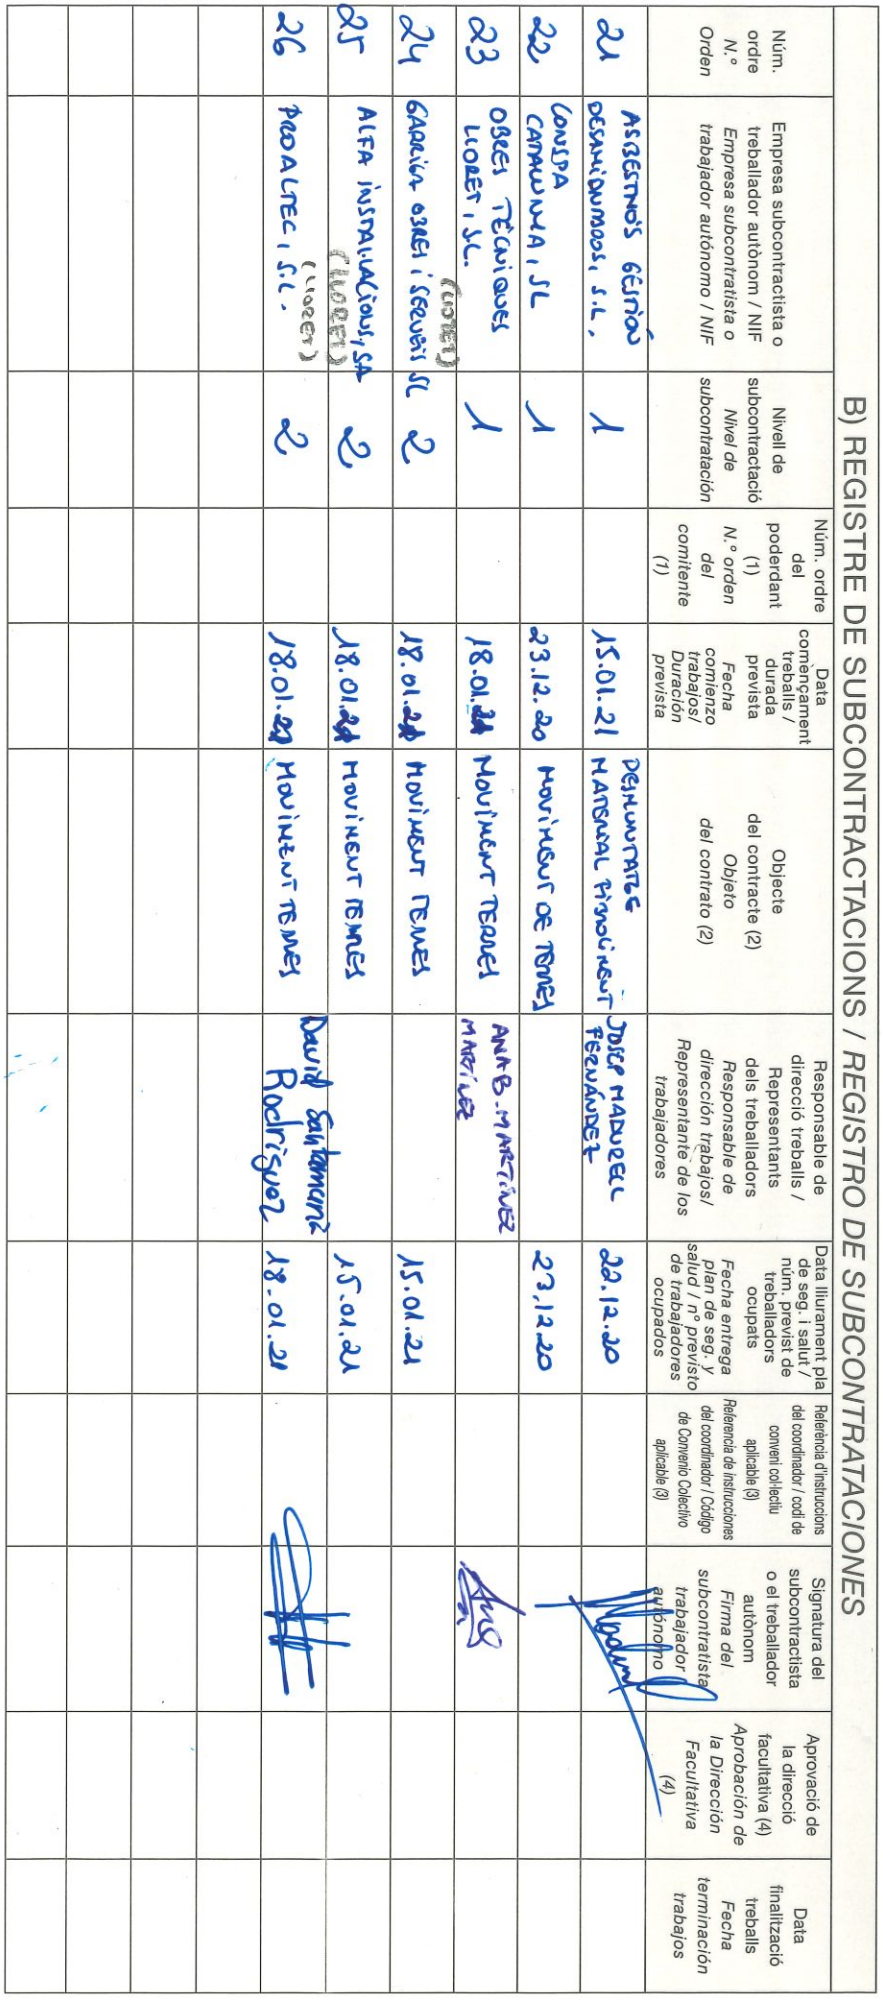 B) REGISTRE DE SUBCONTRACTACIONS / REGISTRO DE SUBCONTRATACIONES
Núm.
ordre
N.º
Orden
Empresa subcontractista o
treballador autònom / NIF
Empresa subcontratista o
trabajador autónomo / NIF
Nivell de
subcontractació
Nivel de
subcontratación
Núm. ordre
del
poderdant
(1)
N.º orden
del
comitente
(1)
Data
començament
treballs /
durada
prevista
Fecha
comienzo
trabajos/
Duración
prevista
Objecte
del contracte (2)
Objeto
del contrato (2)
Responsable de
direcció treballs /
Representants
dels treballadors
Responsable de
dirección trabajos/
Representante de los
trabajadores
Data lliurament pla
de seg. i salut /
núm. previst de
treballadors
ocupats
Fecha entrega
plan de seg. y
salud / nº previsto
de trabajadores
ocupados
Referència d'instruccions
del coordinador / codi de
conveni col·lectiu
aplicable (3)
Referencia de instrucciones
del coordinador / Código
de Convenio Colectivo
aplicable (3)
Signatura del
subcontractista
o el treballador
autònom
Firma del
subcontratista
trabajador
autónomo
Aprovació de
la direcció
facultativa (4)
Aprobación de
la Dirección
Facultativa
(4)
Data
finalització
treballs
Fecha
terminación
trabajos
21
ASBESTNOS GESTIÓN
DESAMIANTADOS, S.L.
1
15.01.21
DESMUNTATGE
MATERIAL FIBROCIMENT
JOSEP MADURELL
FERNÁNDEZ
22.12.20
22
CONSPA
CATALUNYA, SL
1
23.12.20
MOVIMENT DE TERRES
23.12.20
23
OBRES TÈCNIQUES
LLORET, S.L.
1
18.01.21
MOVIMENT TERRES
ANA B. MARTÍNEZ
MARTÍNEZ
24
GARRIGA OBRES i SERVEIS SL
(LLORET)
2
18.01.21
MOVIMENT TERRES
15.01.21
25
ALFA INSTAL·LACIONS, SA
(LLORET)
2
18.01.21
MOVIMENT TERRES
15.01.21
26
PROALTEC, S.L.
(LLORET)
2
18.01.21
MOVIMENT TERRES
David Santamaria
Rodriguez
18.01.21